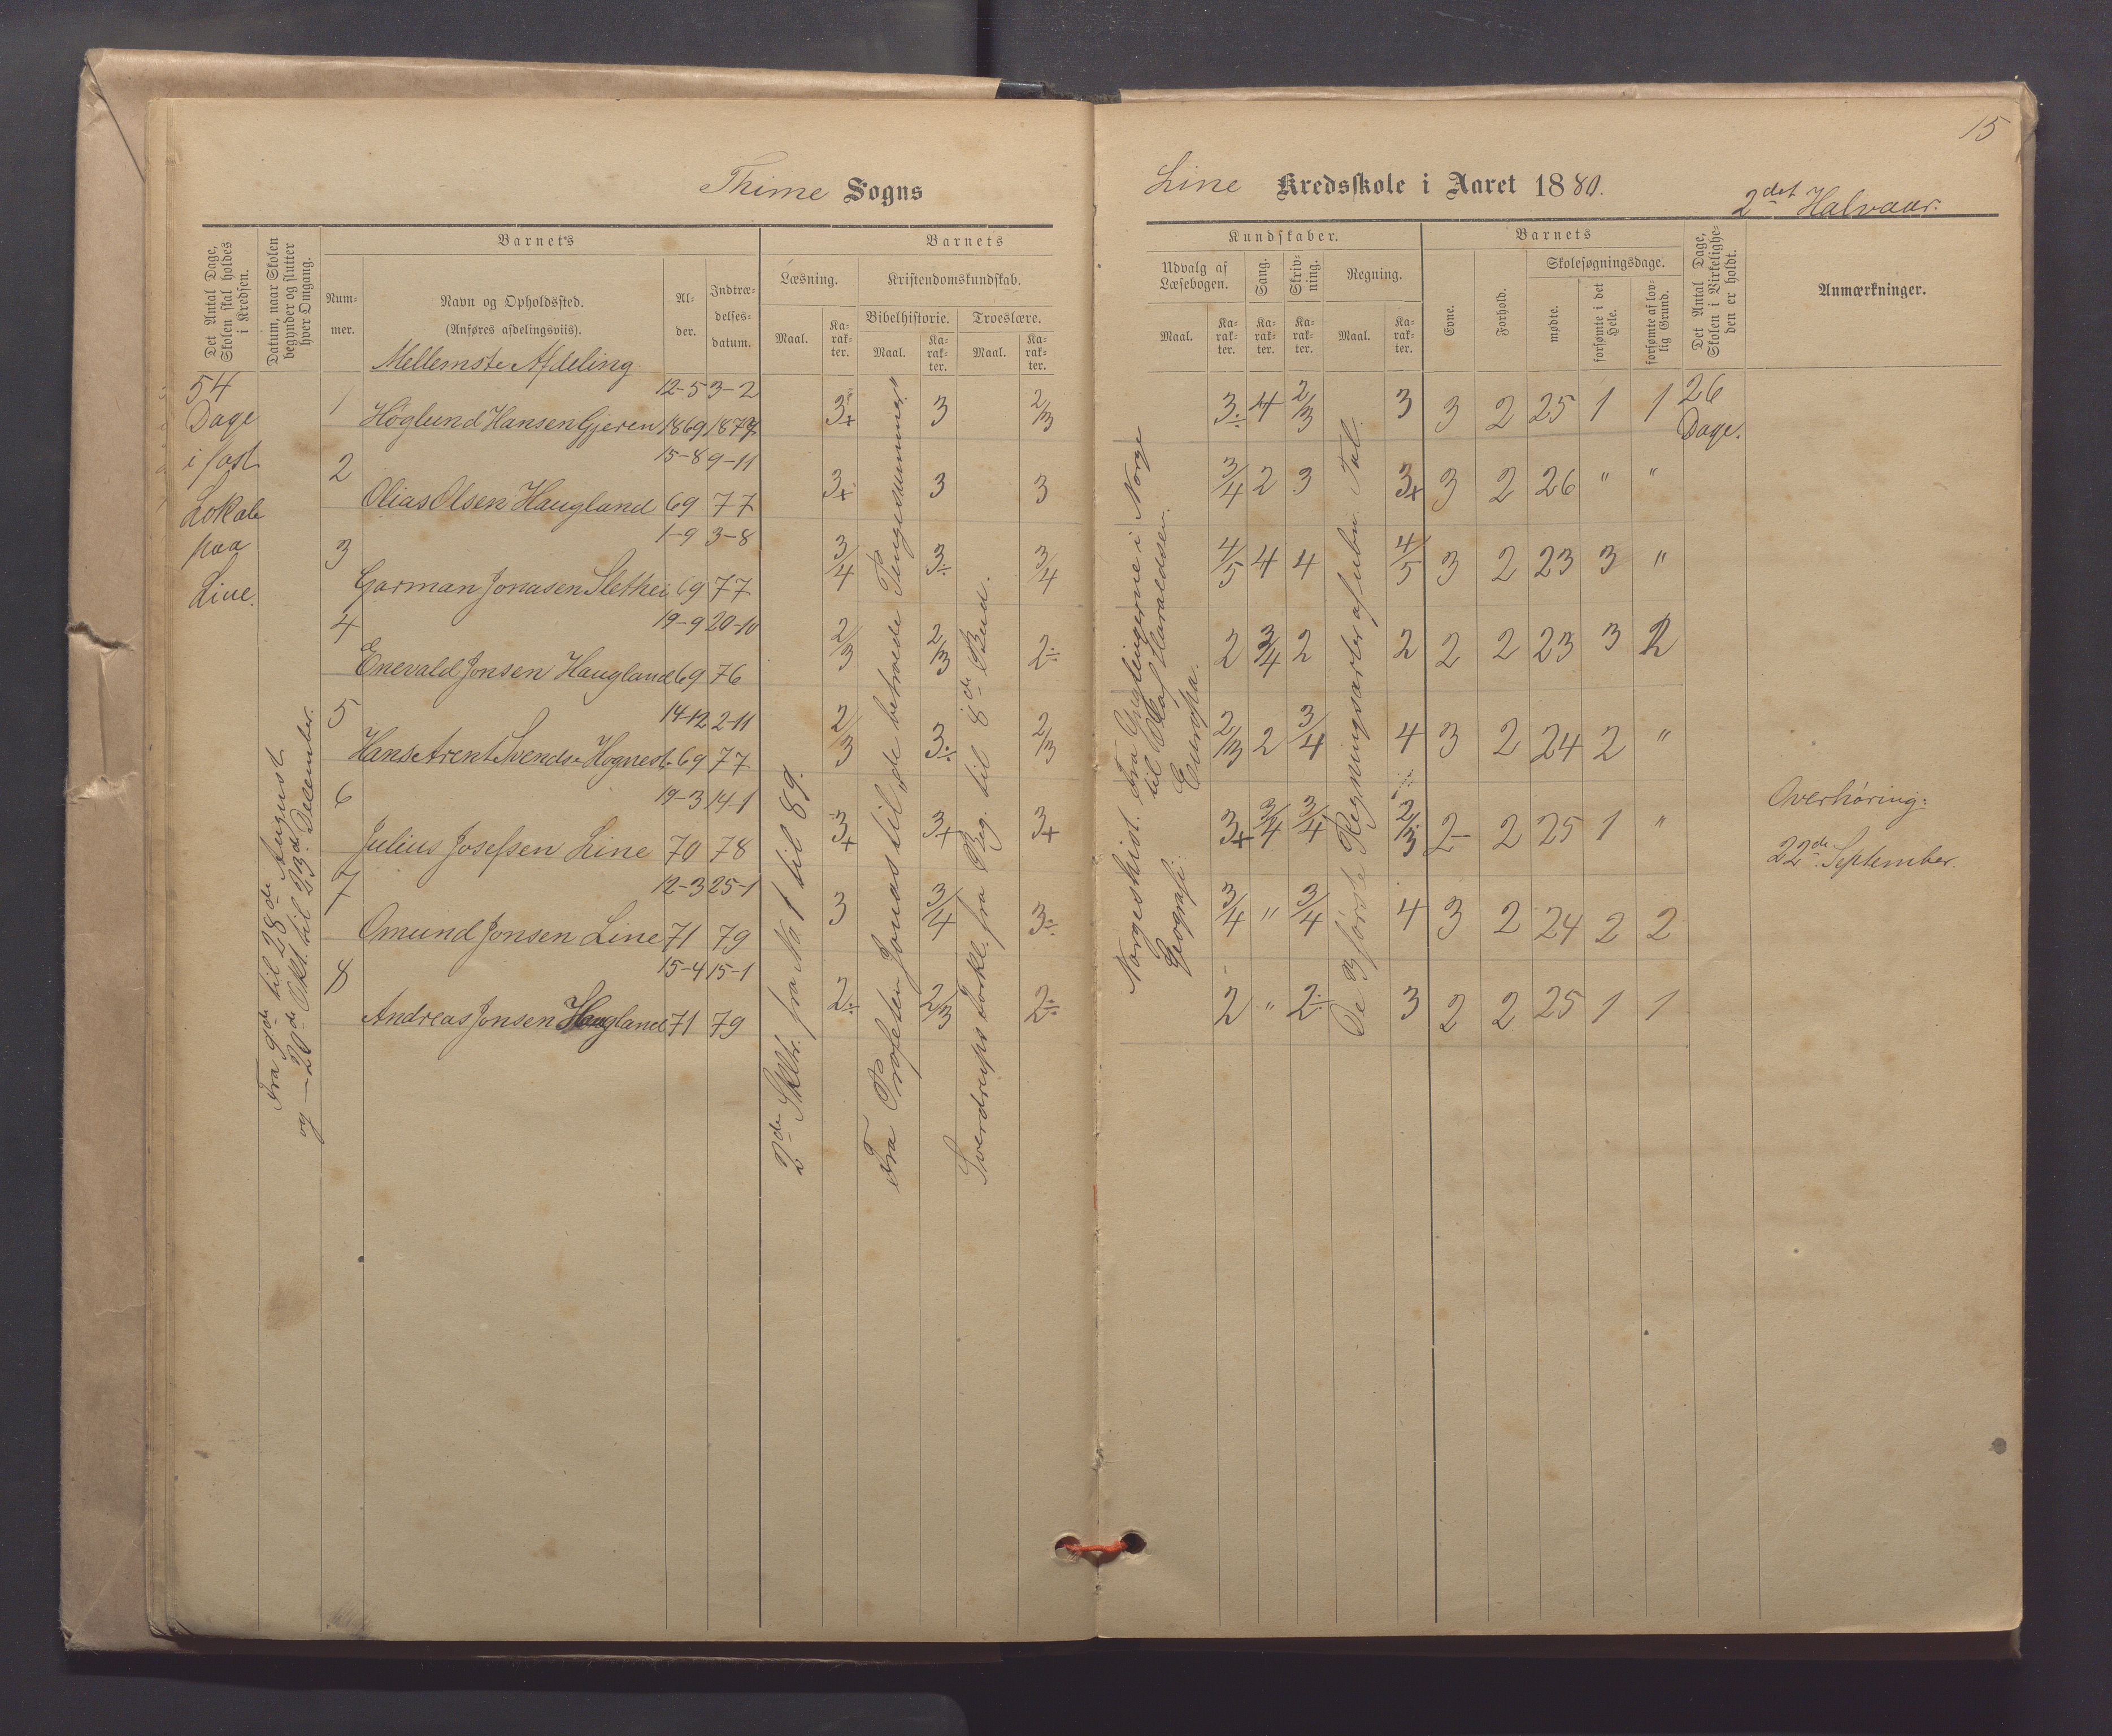 15
Thime Sogns
Line Kredsskole i Aaret 1880.
2det Halvaar.
Det Antal Dage, Skolen skal holdes i Kredsen.
Datum, naar Skolen begynder og slutter hver Omgang.
Barnets
Num-mer.
Navn og Opholdssted.
(Anføres afdelingsviis).
Al-der.
Indtræ-delses-datum.
Barnets
Læsning.
Kristendomskundskab.
Bibelhistorie.
Troeslære.
Maal.
Ka-rak-ter.
Maal.
Ka-rak-ter.
Maal.
Ka-rak-ter.
Kundskaber.
Udvalg af Læsebogen.
Sang.
Skriv-ning.
Regning.
Maal.
Ka-rak-ter.
Ka-rak-ter.
Ka-rak-ter.
Maal.
Ka-rak-ter.
Barnets
Evne.
Forhold.
Skolesøgningsdage.
mødte.
forsømte i det Hele.
forsømte af lov-lig Grund.
Det Antal Dage, Skolen i Virkelighe-den er holdt.
Anmærkninger.
Mellemste Afdeling
54
Dage
i fast
Lokale
paa
Line.
Fra 9de til 28de August
og — 20de Okt. til 23de December.
12-5 3-2
1 Høglund Hansen Gjeren 1869 1877 3+ 3 2/3 3÷ 4 2/3 3 3 2 25 1 1
26
Dage.
15-8 9-11
2 Olias Olsen Haugland 69 77 3+ 3 3 3/4 2 3 3+ 3 2 26 " "
1-9 3-8
3 Garman Jonasen Slethei 69 77 3/4 3÷ 3/4 4/5 4 4 4/5 3 2 23 3 "
19-9 20-10
4 Enevald Jonsen Haugland 69 76 2/3 2/3 2÷ 2 3/4 2 2 2 2 23 3 2
14-12 2-11
5 Hans Arent Svends. Hognest. 69 77 2/3 3÷ 2/3 2/3 2 3/4 4 3 2 24 2 "
19-3 14-1
6 Julius Josefsen Line 70 78 3+ 3+ 3+ 3+ 3/4 3/4 2/3 2- 2 25 1 "
12-3 25-1
7 Omund Jonsen Line 71 79 3 3/4 3÷ 3/4 " 3/4 4 3 2 24 2 2
15-4 15-1
8 Andreas Jonsen Haugland 71 79 2÷ 2/3 2÷ 2 " 2÷ 3 2 2 25 1 1
2de Skltr. fra No 1 til 89.
Fra Profeten Jonas til „de betroede Pengesummer"
Sverdrups Forkl. fra Beg. til 8de Bud.
Norgeshist. Fra Ynglingerne i Norge
til Olaf Haraldssen.
Geografi: Europa.
De 3 første Regningsarter af ubn. Tal.
Overhøring:
22de September.